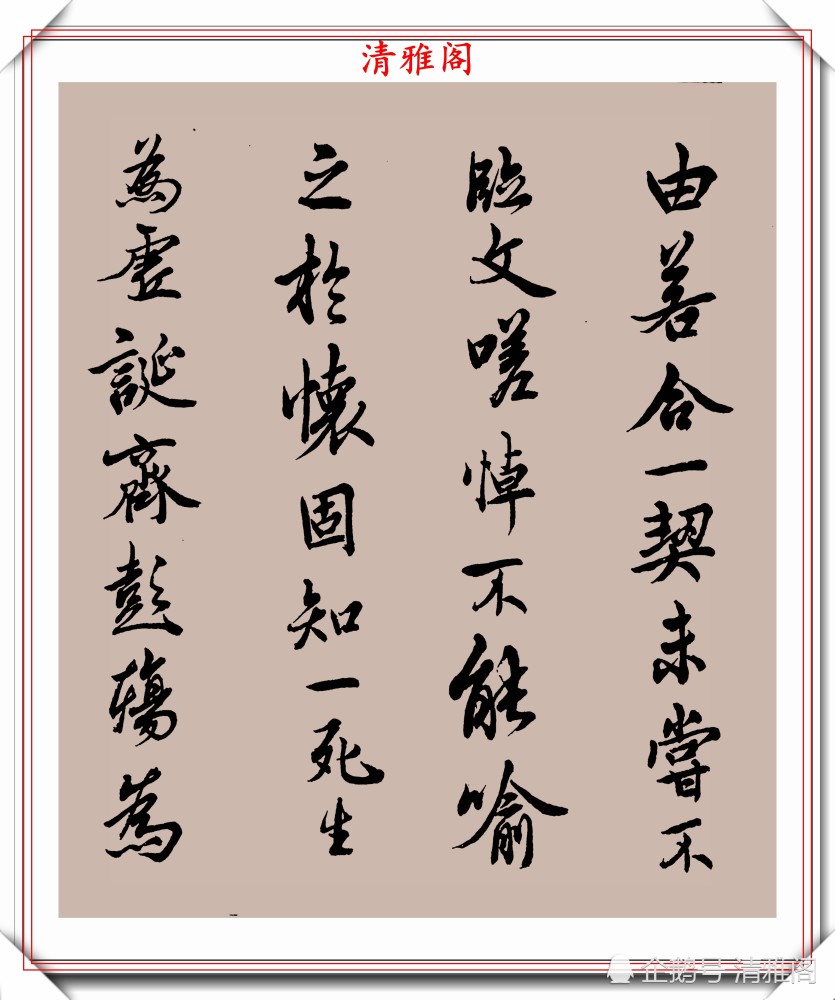 清雅阁
由若合一契未嘗不
臨文嗟悼不能喻
之於懷固知一死生
為虛誕齊彭殤為
企鹅号 清雅阁